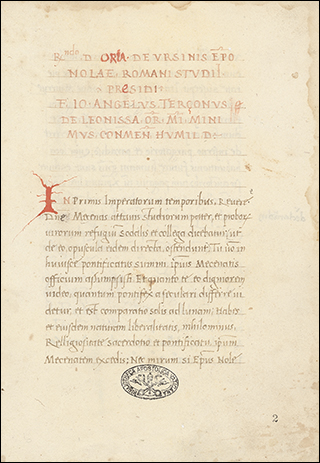 Rndo D ORſA · DE VRSINIS EP̄O
NOLAE · ROMANI STVDII
PRESIDI
F. IO · ANGELVS TERÇONVS
DE LEONISSA · OR̄ · MI MINI
MVS · CONMEN · HVMIL D:
IN Primis Imperatorum temporibus, Reuere
Mecenas, attum studiorum pater, et probor
uirorum refugiu sodalis et collega
de eo, opuscula eidem directa, ostendunt; Tu uo in
huiusce pontificatus summi, ipsius Mecenatis
officium assumpsisti. Et quanto te eo digniorem
uideo, quantum pontifex a seculari differre ui
detur, et est comparatio solis ad lunam, Habes
et eiusdem nationem liberalitatis, nihilominus,
Relligiositate sacerdotio et pontificatu, ipsum
Mecenatem excedis; Nec mirum, si Epus Nole
BIBLIOTECA APOSTOLICA VATICANA
2